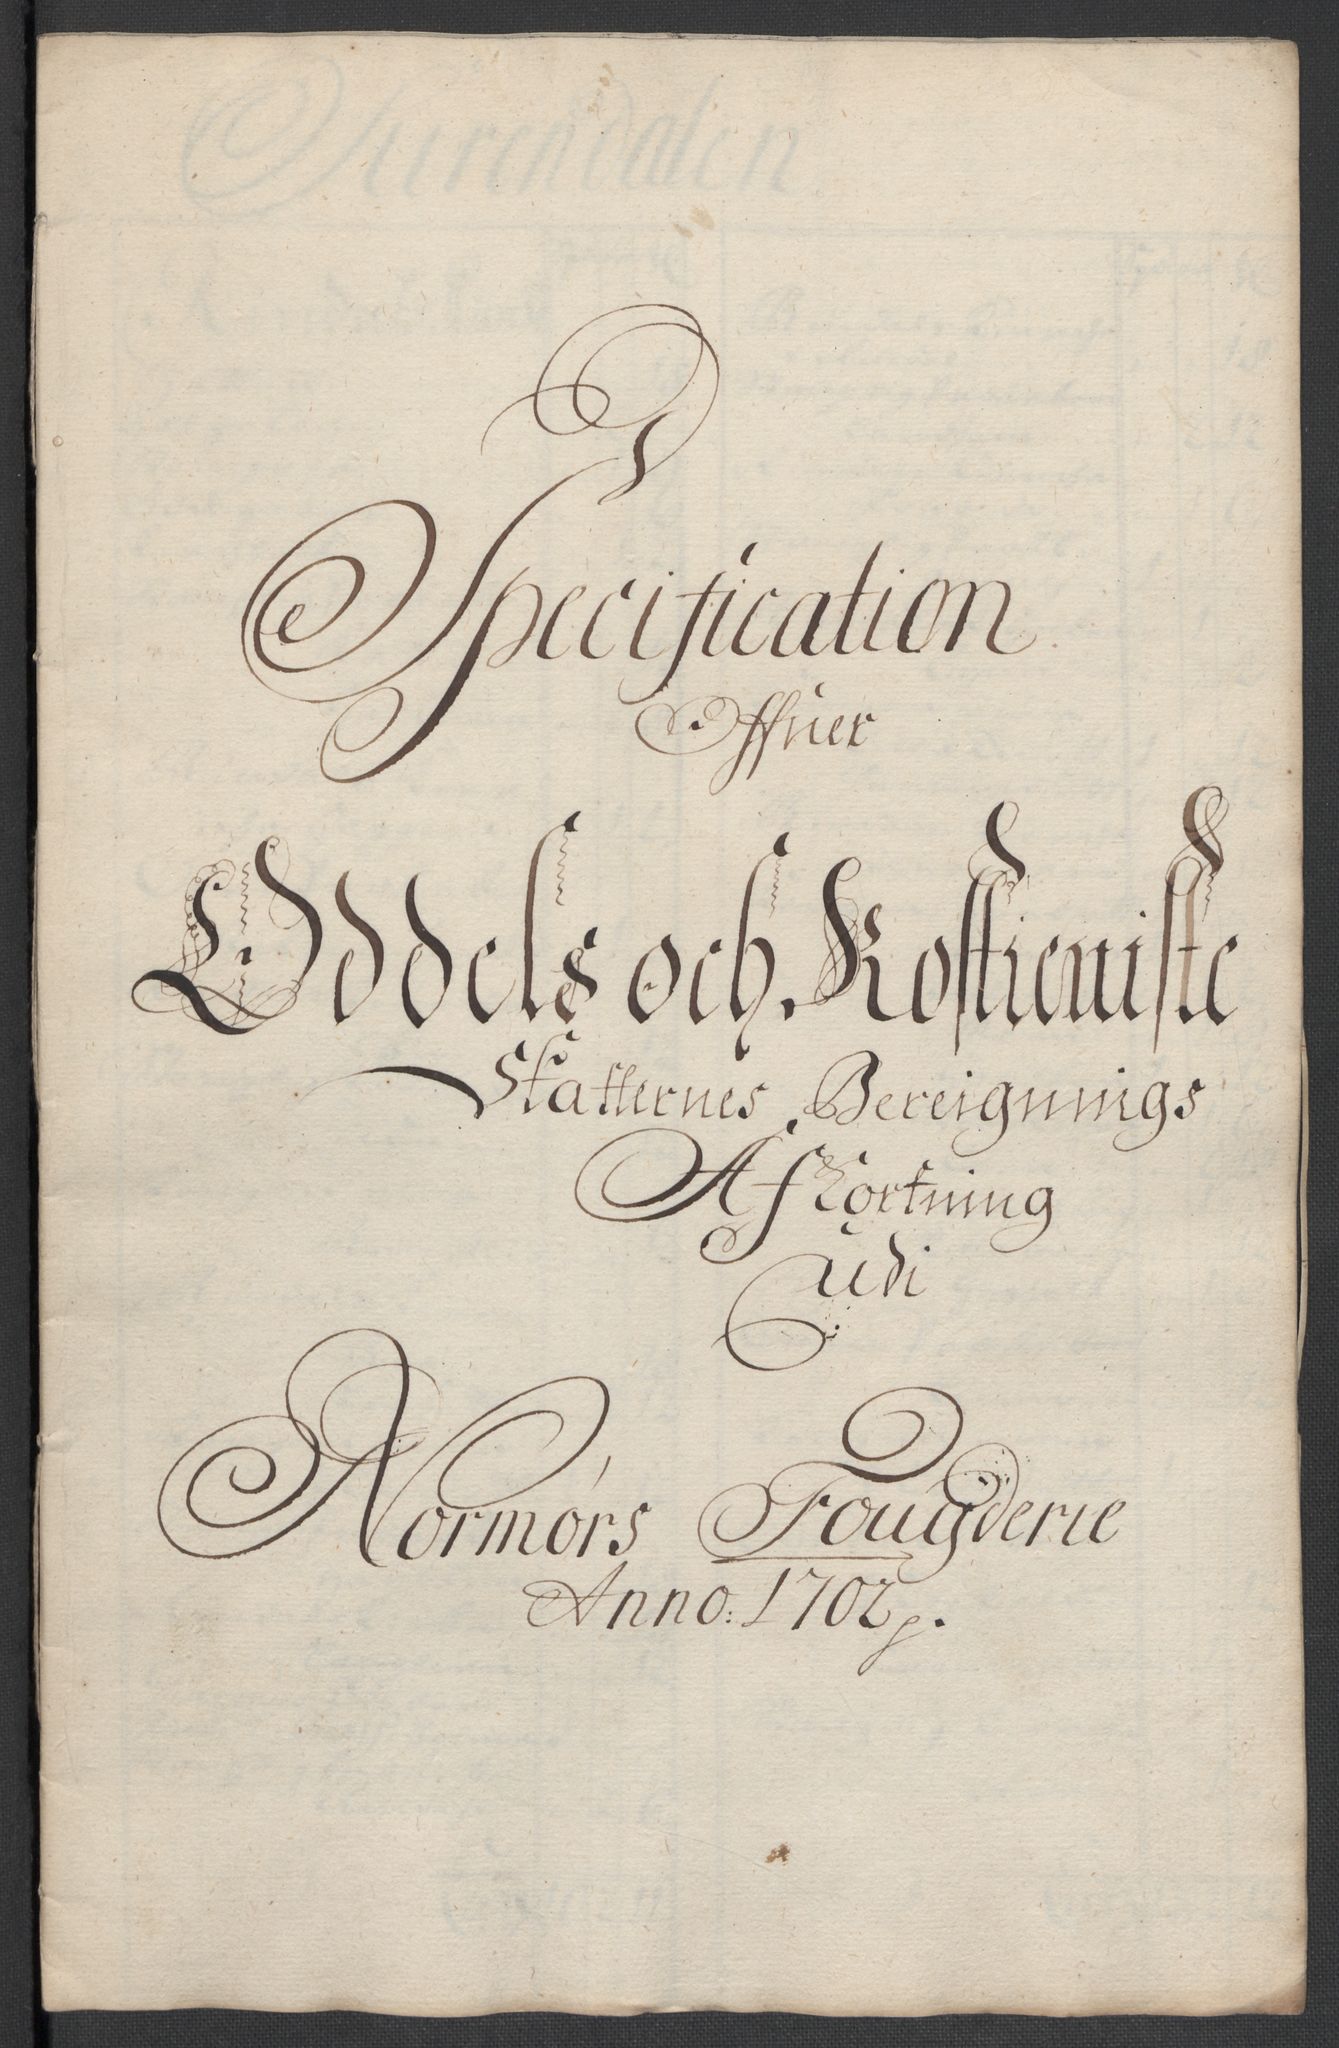 Specification
Offuer
Oddels och Rostieniste
Skatternes Bereignings
Afkortning
Udi
Normørs Fougderie
Anno: 1702